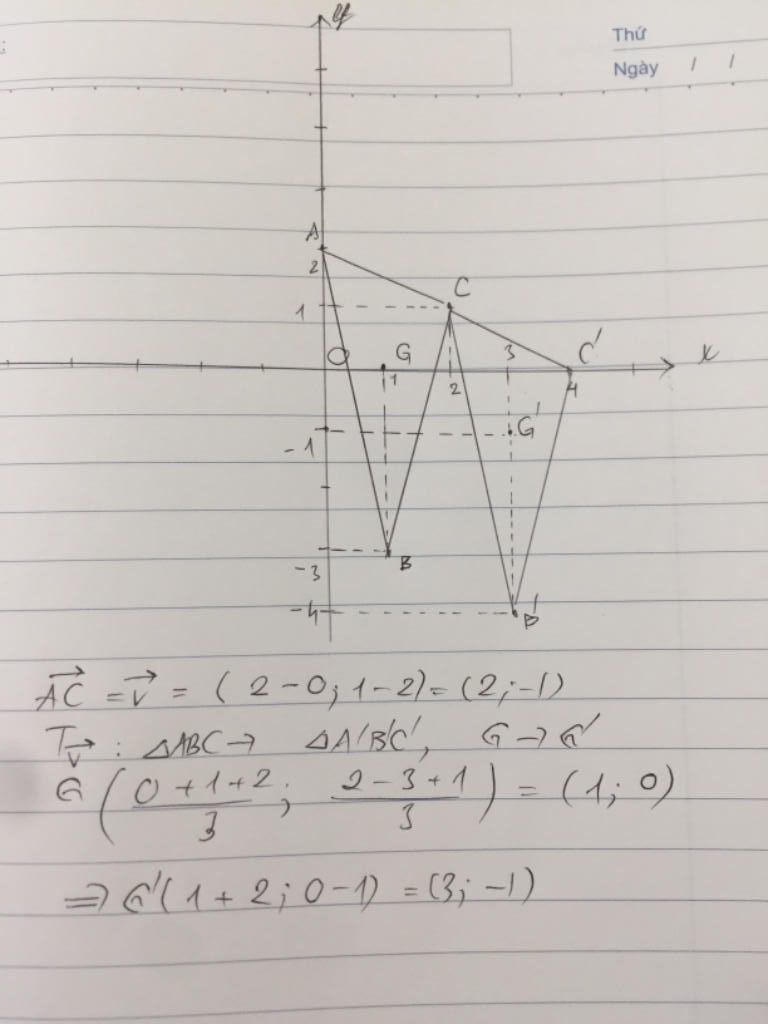 :
Thứ
Ngày / /
y
A
2
1
C
O
G
1
2
3
C'
4
x
-1
G'
B
-3
-4
B'
\overrightarrow{AC} = \overrightarrow{V} = (2-0; 1-2) = (2; -1)
T_{\overrightarrow{V}} : △ABC → △A'B'C', G → G'
G ( \frac{0+1+2}{3} ; \frac{2-3+1}{3} ) = (1; 0)
⇒ G'(1+2; 0-1) = (3; -1)